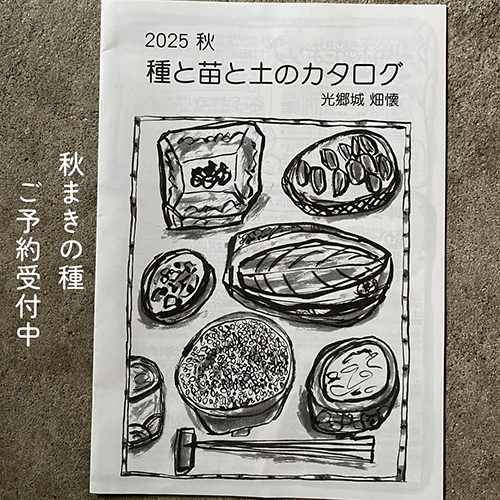 2025 秋
種と苗と土のカタログ
光郷城 畑懐
秋まきの種
ご予約受付中